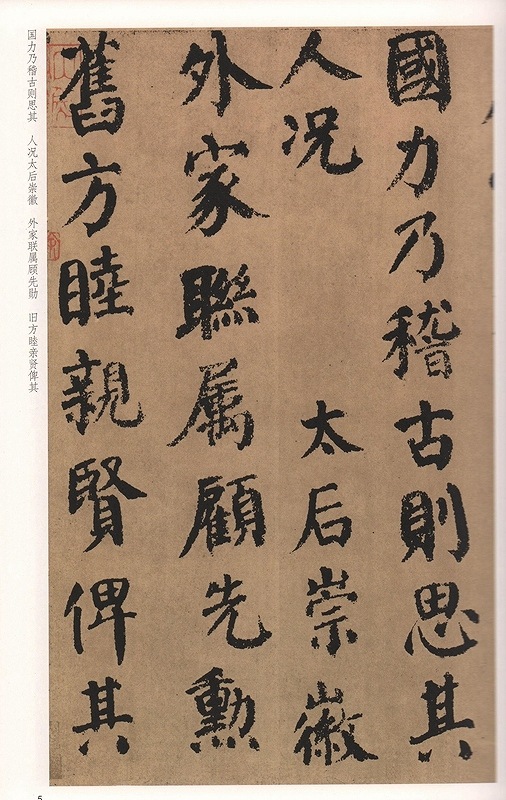 國力乃稽古則思其
人况 太后崇徽
外家聯属顧先勳
舊方睦親賢俾其
国力乃稽古则思其 人况太后崇徽 外家联属顾先勋 旧方睦亲贤俾其
5